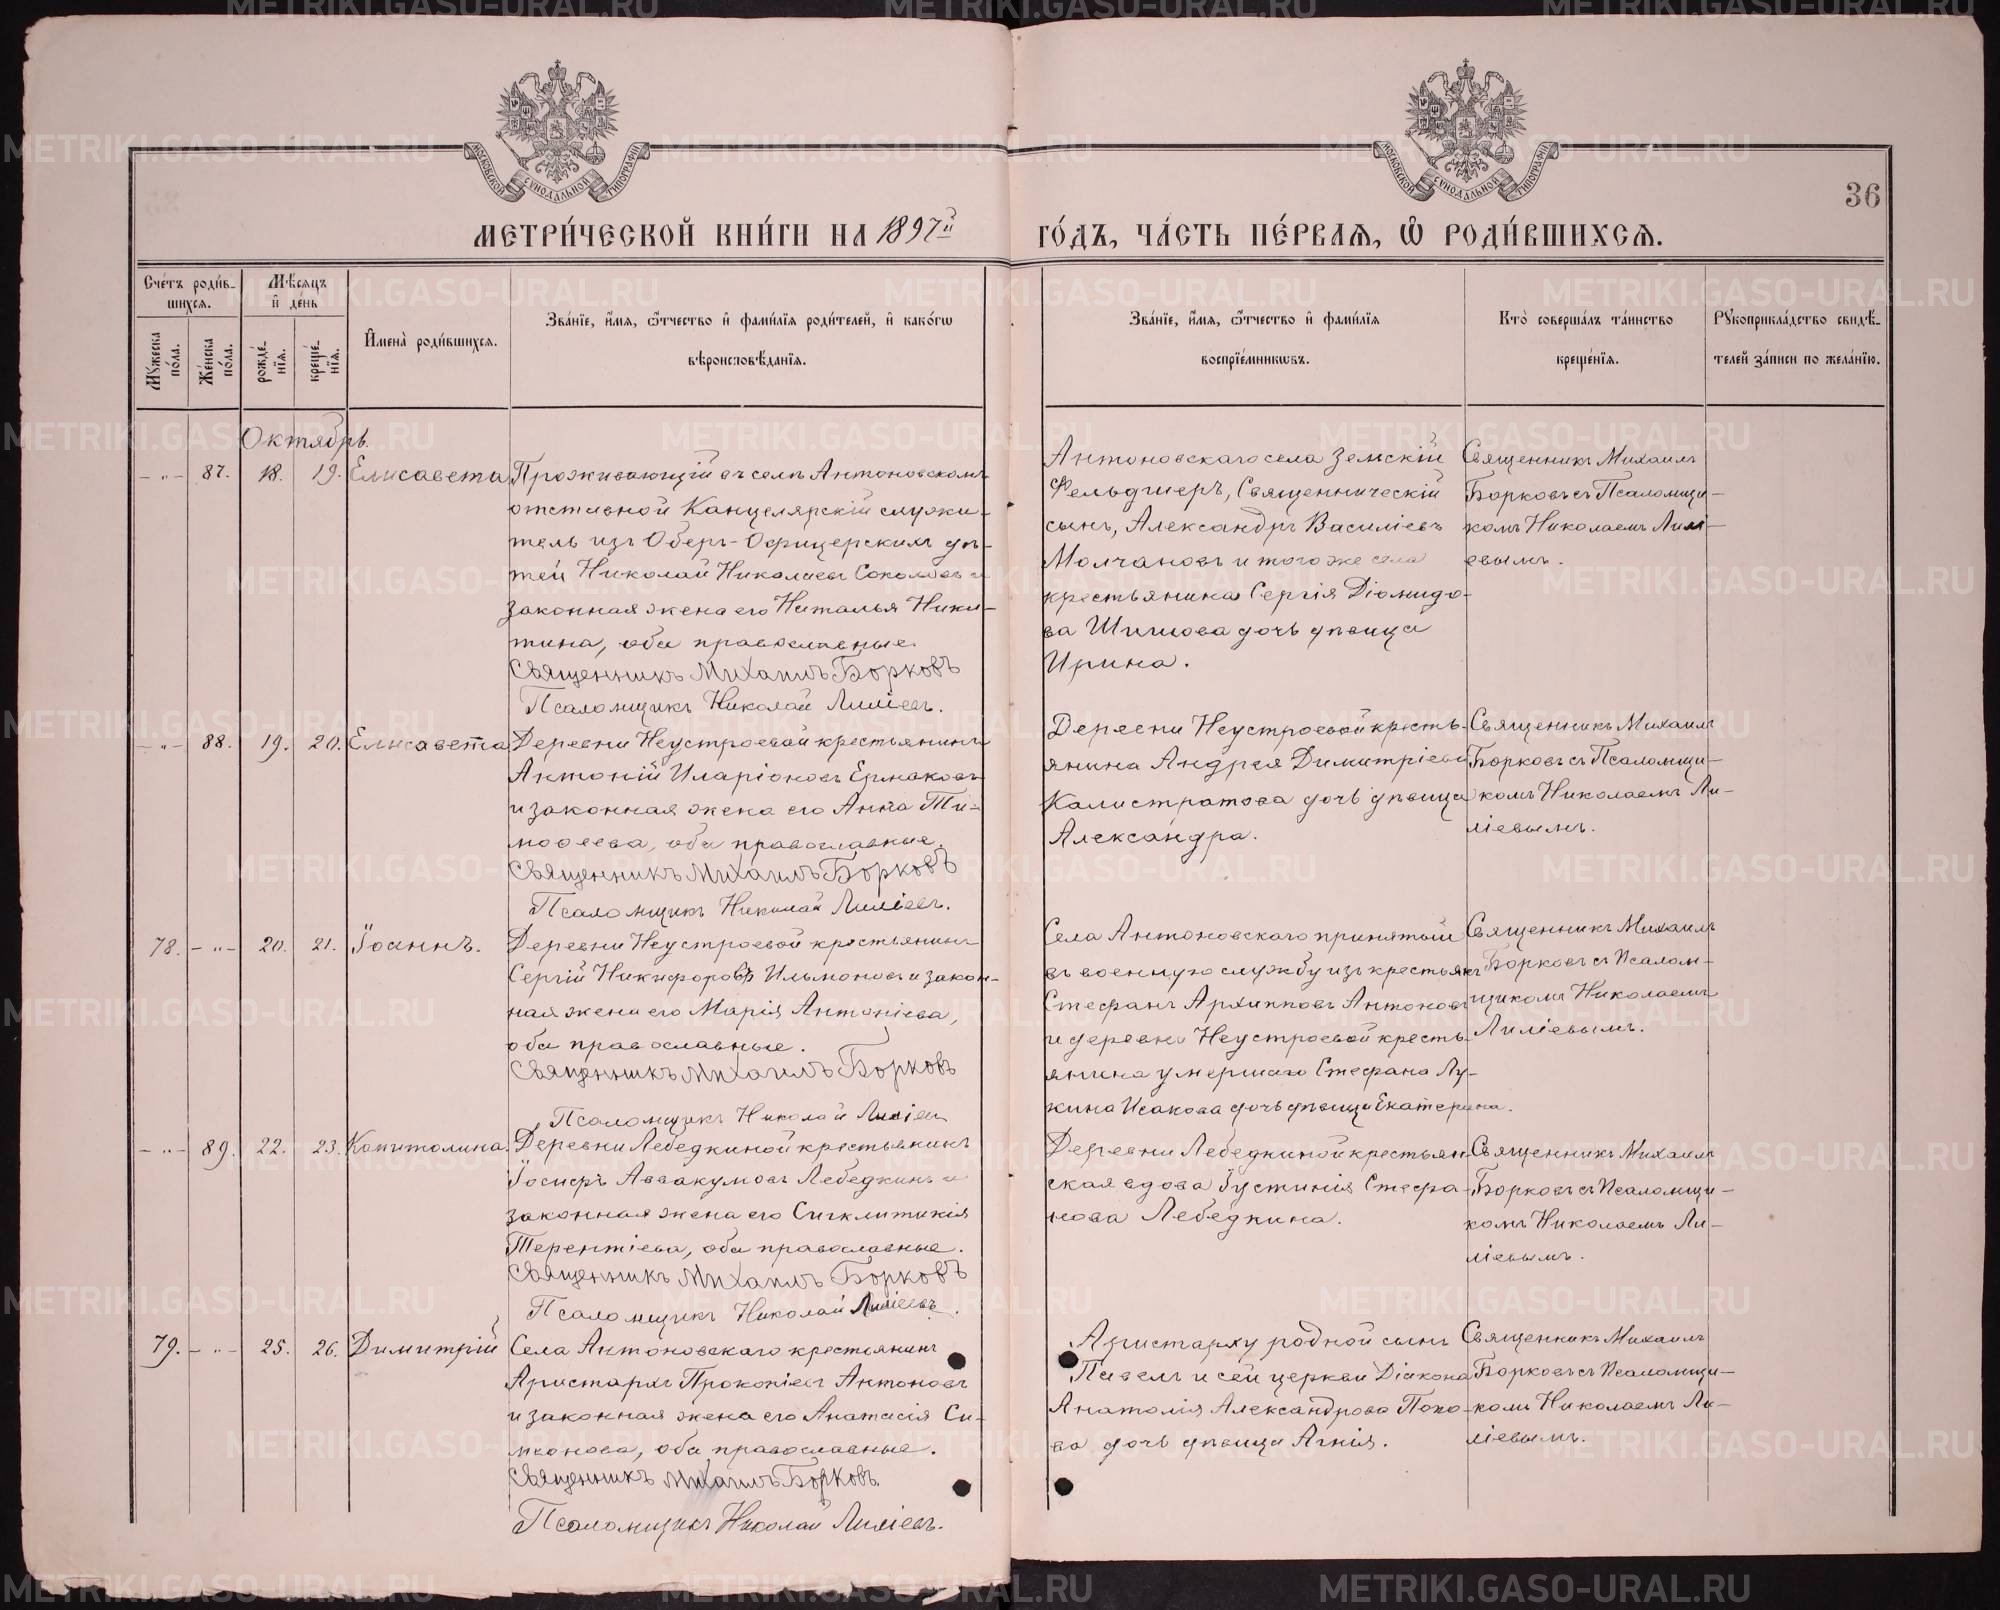 МОСКОВСКОЙ СУНОДАЛЬНОЙ ТИПОГРАФІИ
МОСКОВСКОЙ СУНОДАЛЬНОЙ ТИПОГРАФІИ
36
МЕТРИ́ЧЕСКОЙ КНИ́ГИ НА 1897й
ГО́ДЪ, ЧА́СТЬ ПЕ́РВАѦ, Ѡ РОДИ́ВШИХСѦ.
Сче́тъ роди́в-
шихсѧ.
Мѣ́сѧцъ
и҆ де́нь
Мꙋжеска по́ла.
Же́нска по́ла.
рожде́-
нїѧ.
креще́-
нїѧ.
И҆мена̀ роди́вшихсѧ.
Зва́нїе, и҆́мѧ, ѻ҆́тчество и҆ фами́лїѧ роди́телей, и҆ како́гѡ
вѣроисповѣ́данїѧ.
Зва́нїе, и҆́мѧ, ѻ҆́тчество и҆ фами́лїѧ
воспрїе́мникѡвъ.
Кто̀ соверша́лъ та́инство
креще́нїѧ.
Рꙋкоприкла́дство свидѣ́-
телей за́писи по жела́нїю.
Октябрь.
— „ — 87. 18. 19. Елисавета
Проживающій въ селѣ Антоновскомъ
отставной Канцелярскій служи-
тель изъ Оберъ-Офицерскихъ дѣ-
тей Николай Николаевъ Соколовъ и
законная жена его Наталья Ники-
тина, оба православные.
Священникъ Михаилъ Борковъ
Псаломщикъ Николай Лиліевъ.
Антоновскаго села Земскій
Фельдшеръ, Священническій
сынъ, Александръ Василіевъ
Молчановъ и того же села
крестьянина Сергія Діомидо-
ва Шишова дочь дѣвица
Ирина.
Священникъ Михаилъ
Борковъ съ Псаломщи-
комъ Николаемъ Лилі-
евымъ.
— „ — 88. 19. 20. Елисавета
Деревни Неустроевой крестьянинъ
Антоній Иларіоновъ Ермаковъ
и законная жена его Анна Ти-
моѳеева, оба православные.
Священникъ Михаилъ Борковъ
Псаломщикъ Николай Лиліевъ.
Деревни Неустроевой кресть-
янина Андрея Димитріева
Калистратова дочь дѣвица
Александра.
Священникъ Михаилъ
Борковъ съ Псаломщи-
комъ Николаемъ Ли-
ліевымъ.
78. — „ — 20. 21. Іоаннъ.
Деревни Неустроевой крестьянинъ
Сергій Никифоровъ Ильмоновъ и закон-
ная жена его Марія Антоніева,
оба православные.
Священникъ Михаилъ Борковъ
Псаломщикъ Николай Лиліевъ
Села Антоновскаго принятый
въ военную службу изъ крестьянъ
Стефанъ Архипповъ Антоновъ
и деревни Неустроевой кресть-
янина умершаго Стефана Лу-
кина Исакова дочь дѣвица Екатерина.
Священникъ Михаилъ
Борковъ съ Псалом-
щикомъ Николаемъ
Лиліевымъ.
— „ — 89. 22. 23. Капитолина
Деревни Лебедкиной крестьянинъ
Іосифъ Аввакумовъ Лебедкинъ и
законная жена его Сигклитикія
Терентіева, оба православные.
Священникъ Михаилъ Борковъ
Псаломщикъ Николай Лиліевъ.
Деревни Лебедкиной крестьян-
ская вдова Іустинія Стефа-
нова Лебедкина.
Священникъ Михаилъ
Борковъ съ Псаломщи-
комъ Николаемъ Ли-
ліевымъ.
79. — „ — 25. 26. Димитрій
Села Антоновскаго крестьянинъ
Аристархъ Прокопіевъ Антоновъ
и законная жена его Анатасія Си-
меонова, оба православные.
Священникъ Михаилъ Борковъ
Псаломщикъ Николай Лиліевъ.
Аристарху родной сынъ
Павелъ и сей церкви Діакона
Анатолія Александрова Попо-
ва дочь дѣвица Агнія.
Священникъ Михаилъ
Борковъ съ Псаломщи-
комъ Николаемъ Ли-
ліевымъ.
METRIKI.GASO-URAL.RU